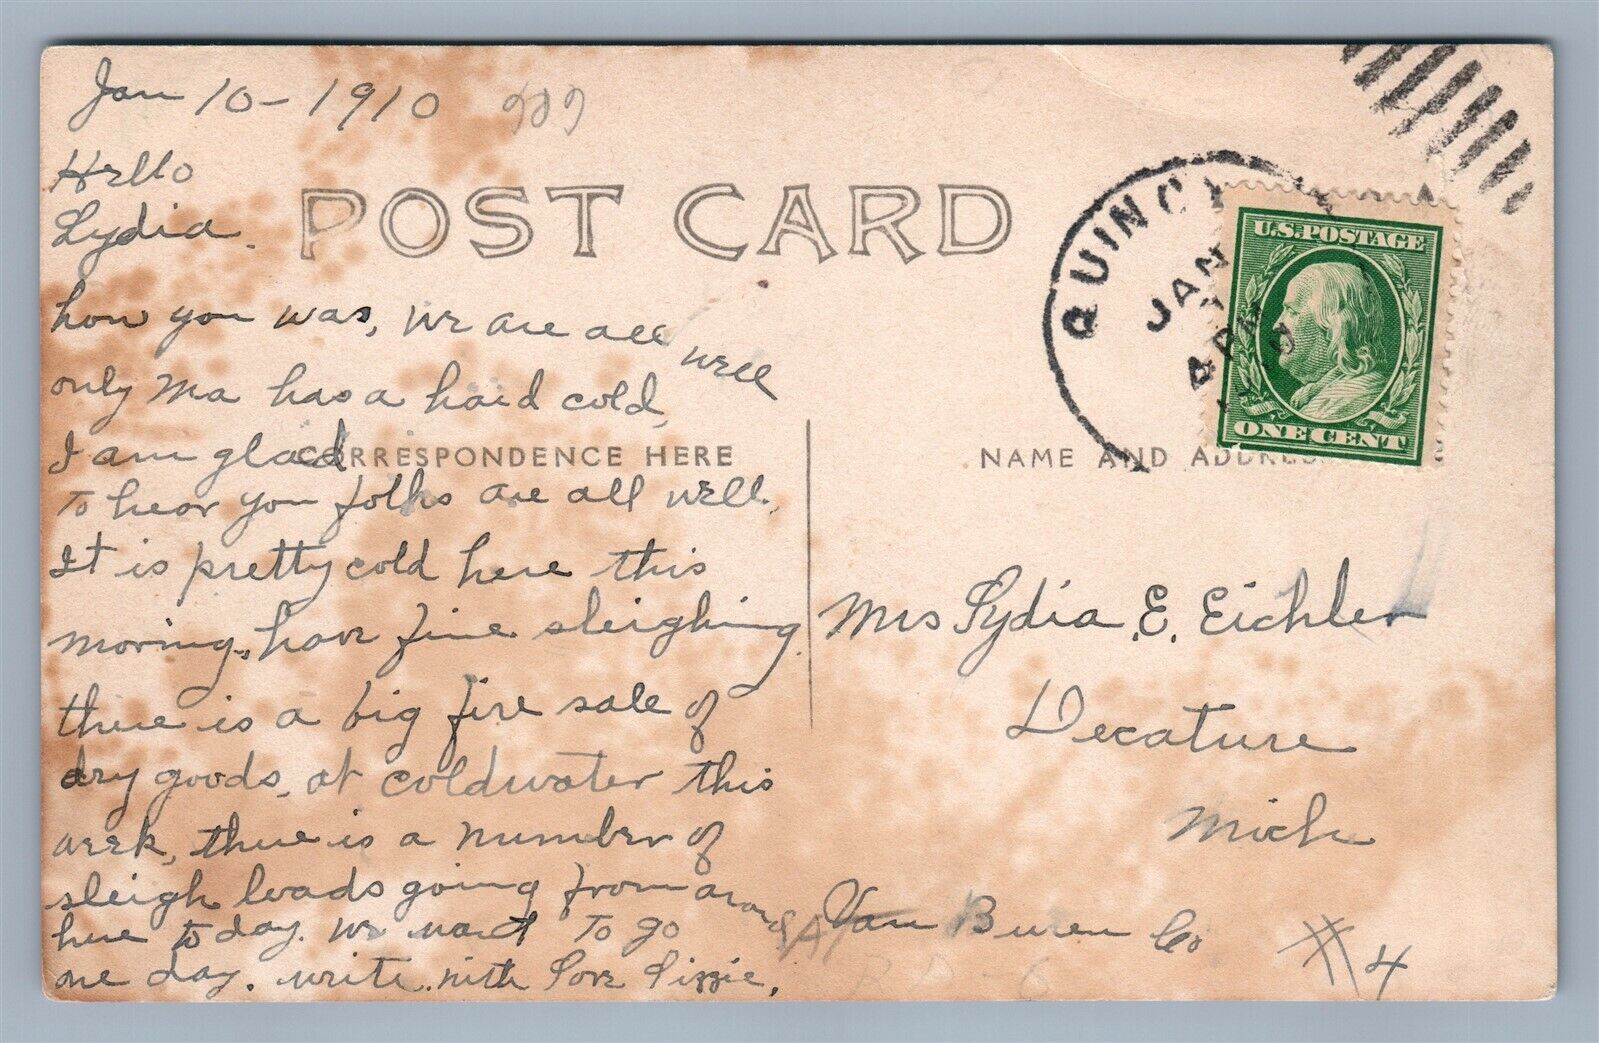 Jan 10-1910
Hello
Lydia.
POST CARD
how you was, we are all well
only Ma has a hard cold,
I am glad
CORRESPONDENCE HERE
to hear you folks are all well.
It is pretty cold here this
morning, have fine sleighing.
there is a big fire sale of
dry goods, at coldwater this
week, there is a number of
sleigh loads going from around
here today. we want to go
one day. write. with Love Lizzie.
QUINCY
JAN
4 PM
U.S. POSTAGE
ONE CENT
NAME AND ADDRESS
Mrs Lydia E. Eichler
Decature
Mich
Van Buren Co
# 4